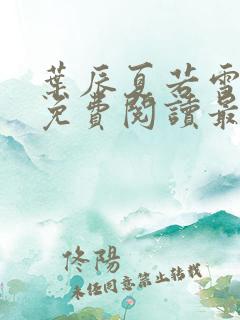 葉辰夏若雪
免費閱讀最
佟陽
未經同意禁止轉載